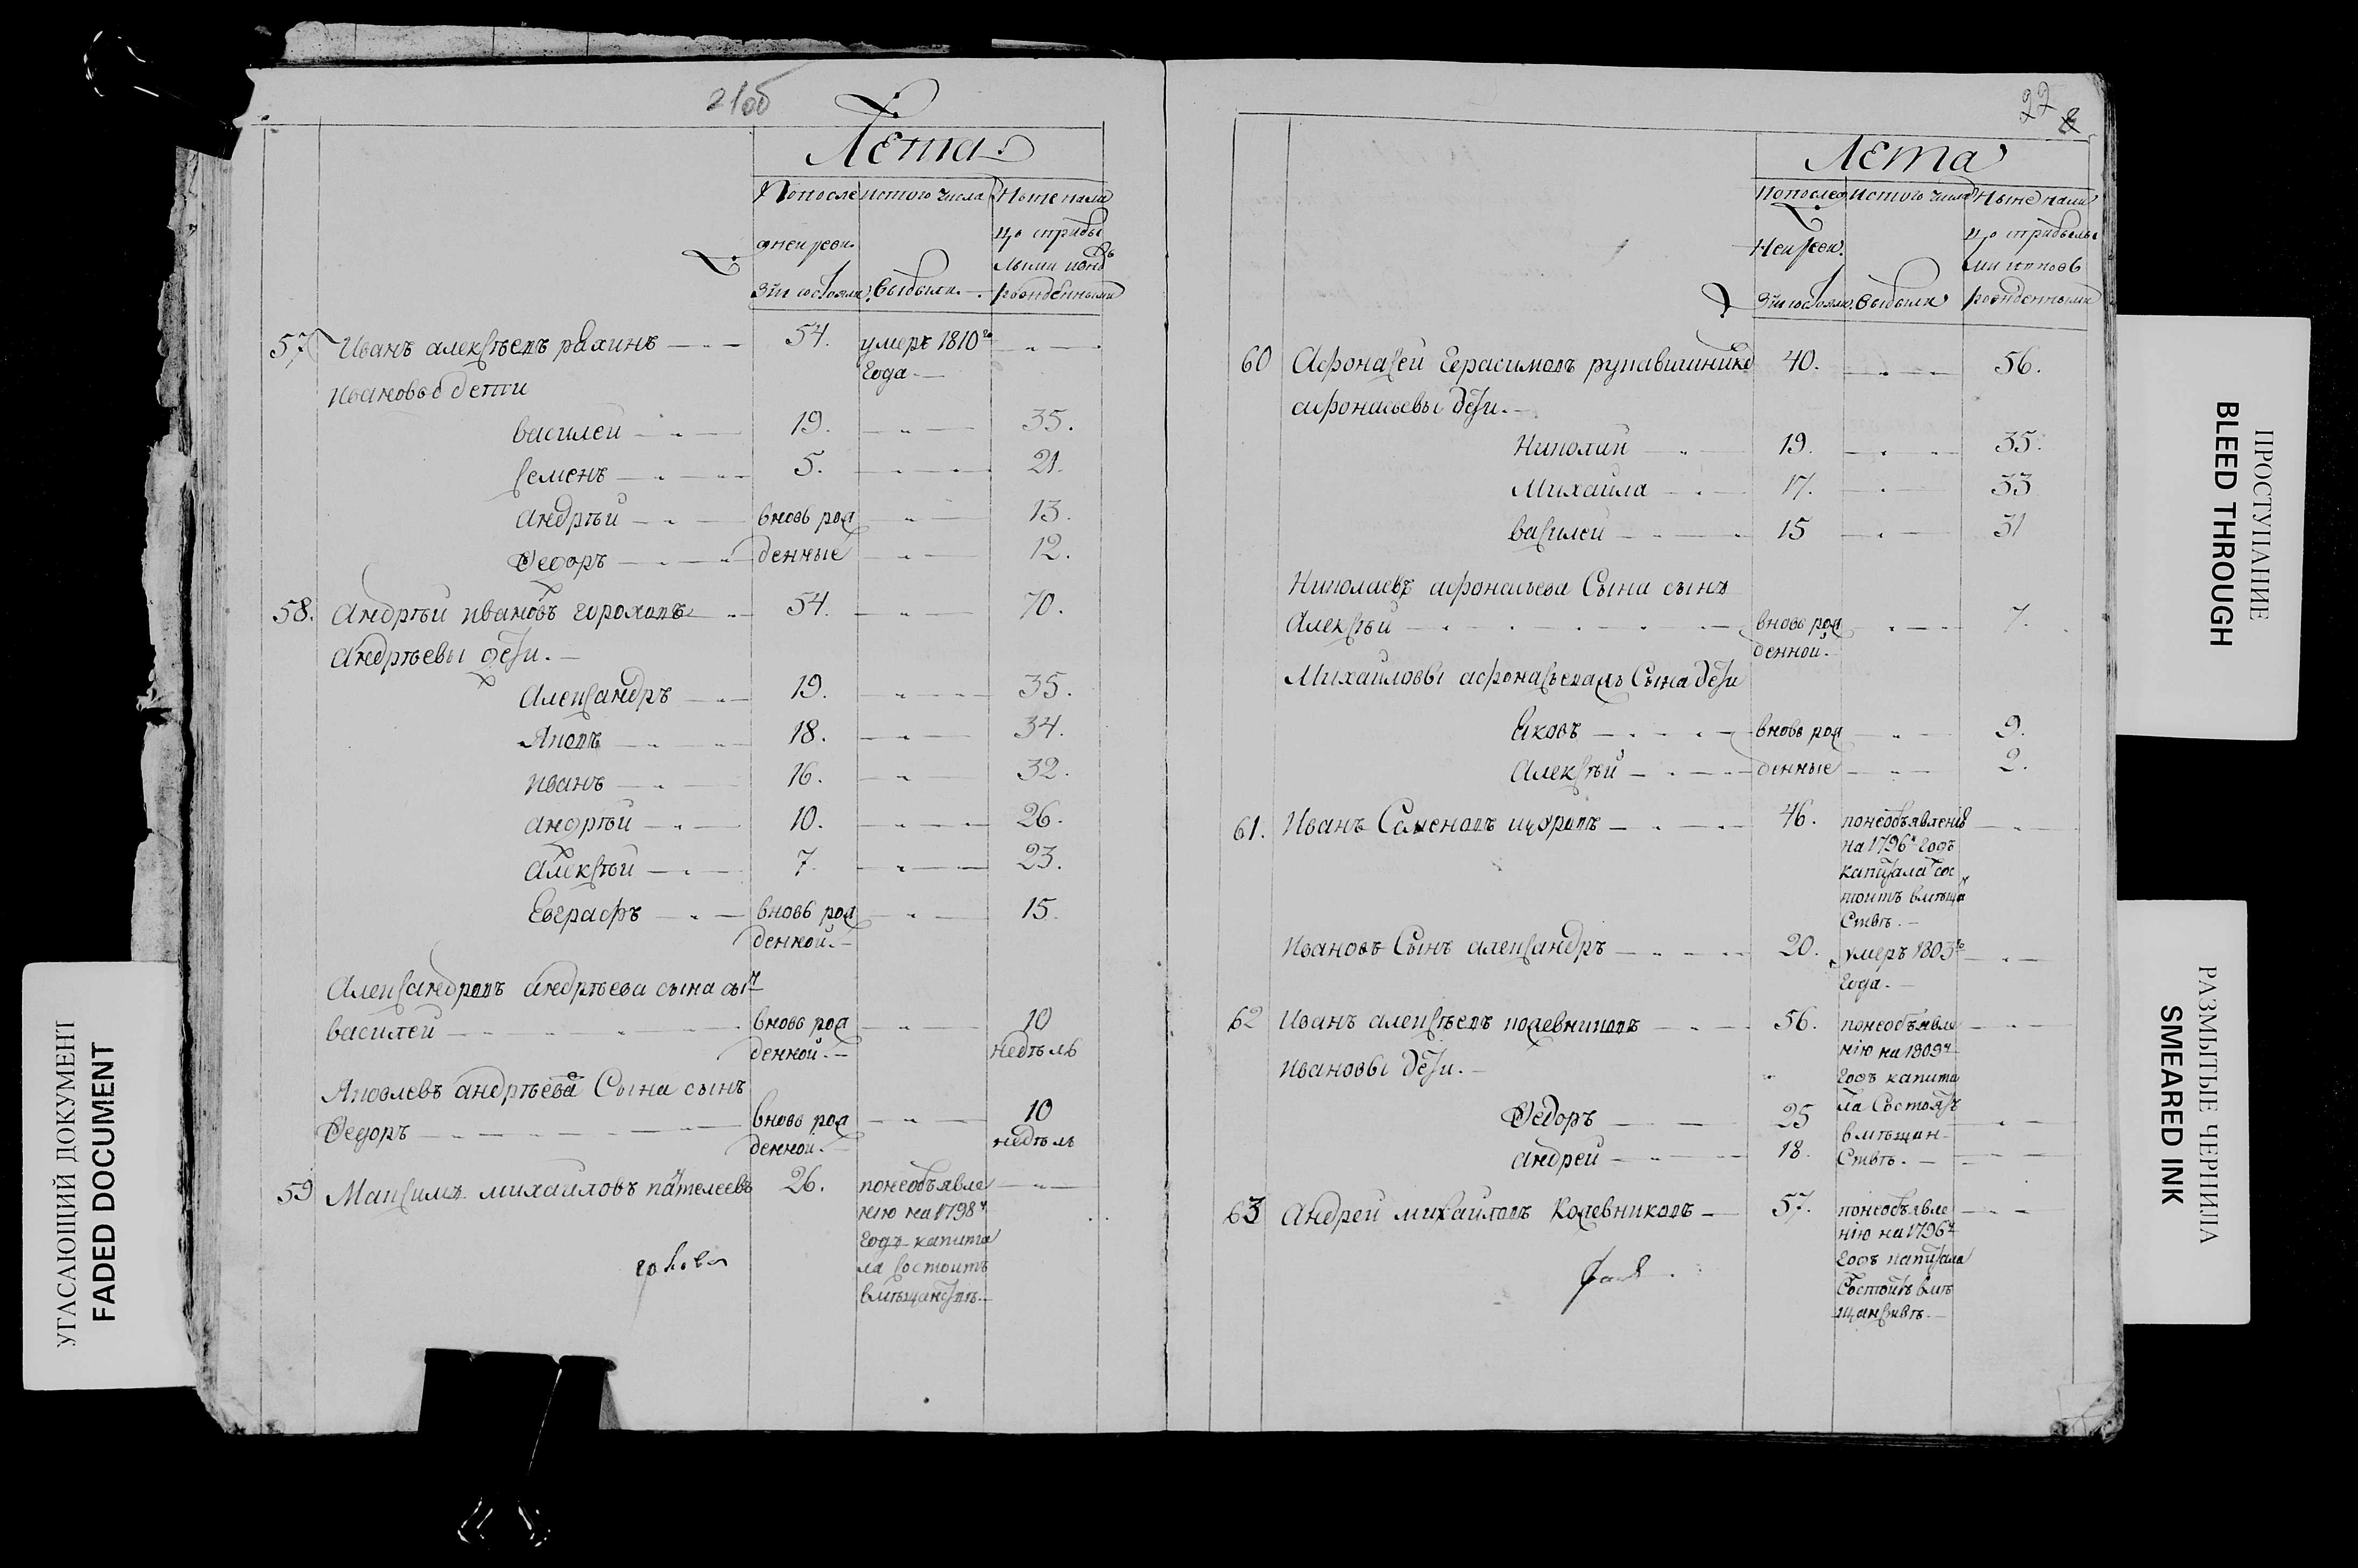 21об
Лета
Попосле
дней реви
зіи состояли
истого числа
выбыли
Ныне нали
цо сприбы
лыми иновь
рожденными
57 Иванъ алексѣевъ рахинъ 54. умеръ 1810го
года
ивановы дети
василеи 19. 35.
семенъ 5. 21.
андрѣй вновь рож 13.
Федоръ денные 12.
58. Андрѣй ивановъ гороховъ 54. 70.
Андрѣевы дети.
Александръ 19. 35.
Яковъ 18. 34.
иванъ 16. 32.
андрѣй 10. 26.
алексѣй 7. 23.
Евграфъ вновь рож 15.
денной.
Александровъ андрѣева сына сынъ
василей вновь рож 10
денной. недѣль
Яковлевъ андрѣева Сына сынъ
Федоръ вновь рож 10
денной. недѣль
59 Максимъ михаиловъ пантелеевъ 26. понеобъявле
нію на 1798й
годъ капита
ла состоитъ
вмѣщанствѣ.
22
Лета
Попослед
ней реви
зіи состояли
Истого числа
выбыли
Ныне нали
цо сприбылы
ми иновь
рожденными
60 Афонасей Герасимовъ рукавишниковъ 40. 56.
афонасьевы дети.
Николай 19. 35.
Михайла 17. 33
василей 15 31
Николаевъ афонасьева Сына сынъ
Алексѣй вновь рож 7.
денной.
Михайловы афонасьева Сына дети
Яковъ вновь рож 9.
Алексѣй денные 2.
61. Иванъ Семеновъ щуровъ 46. понеобъявленію
на 1796й годъ
капитала сос
тоитъ вмѣщан
Ствѣ.
Ивановъ Сынъ александръ 20. умеръ 1803го
года.
62 Иванъ алексѣевъ кожевниковъ 56. понеобъявле
нію на 1809й
годъ капита
Ивановы дети.
Федоръ 25 ла Состоятъ
вмѣщан
андрей 18. Ствѣ.
63 Андрей михайловъ Кожевниковъ 57. понеобъявле
нію на 1796й
годъ капитала
Состоитъ вмѣ
щанствѣ.
УГАСАЮЩИЙ ДОКУМЕНТ
FADED DOCUMENT
ПРОСТУПАНИЕ
BLEED THROUGH
РАЗМЫТЫЕ ЧЕРНИЛА
SMEARED INK